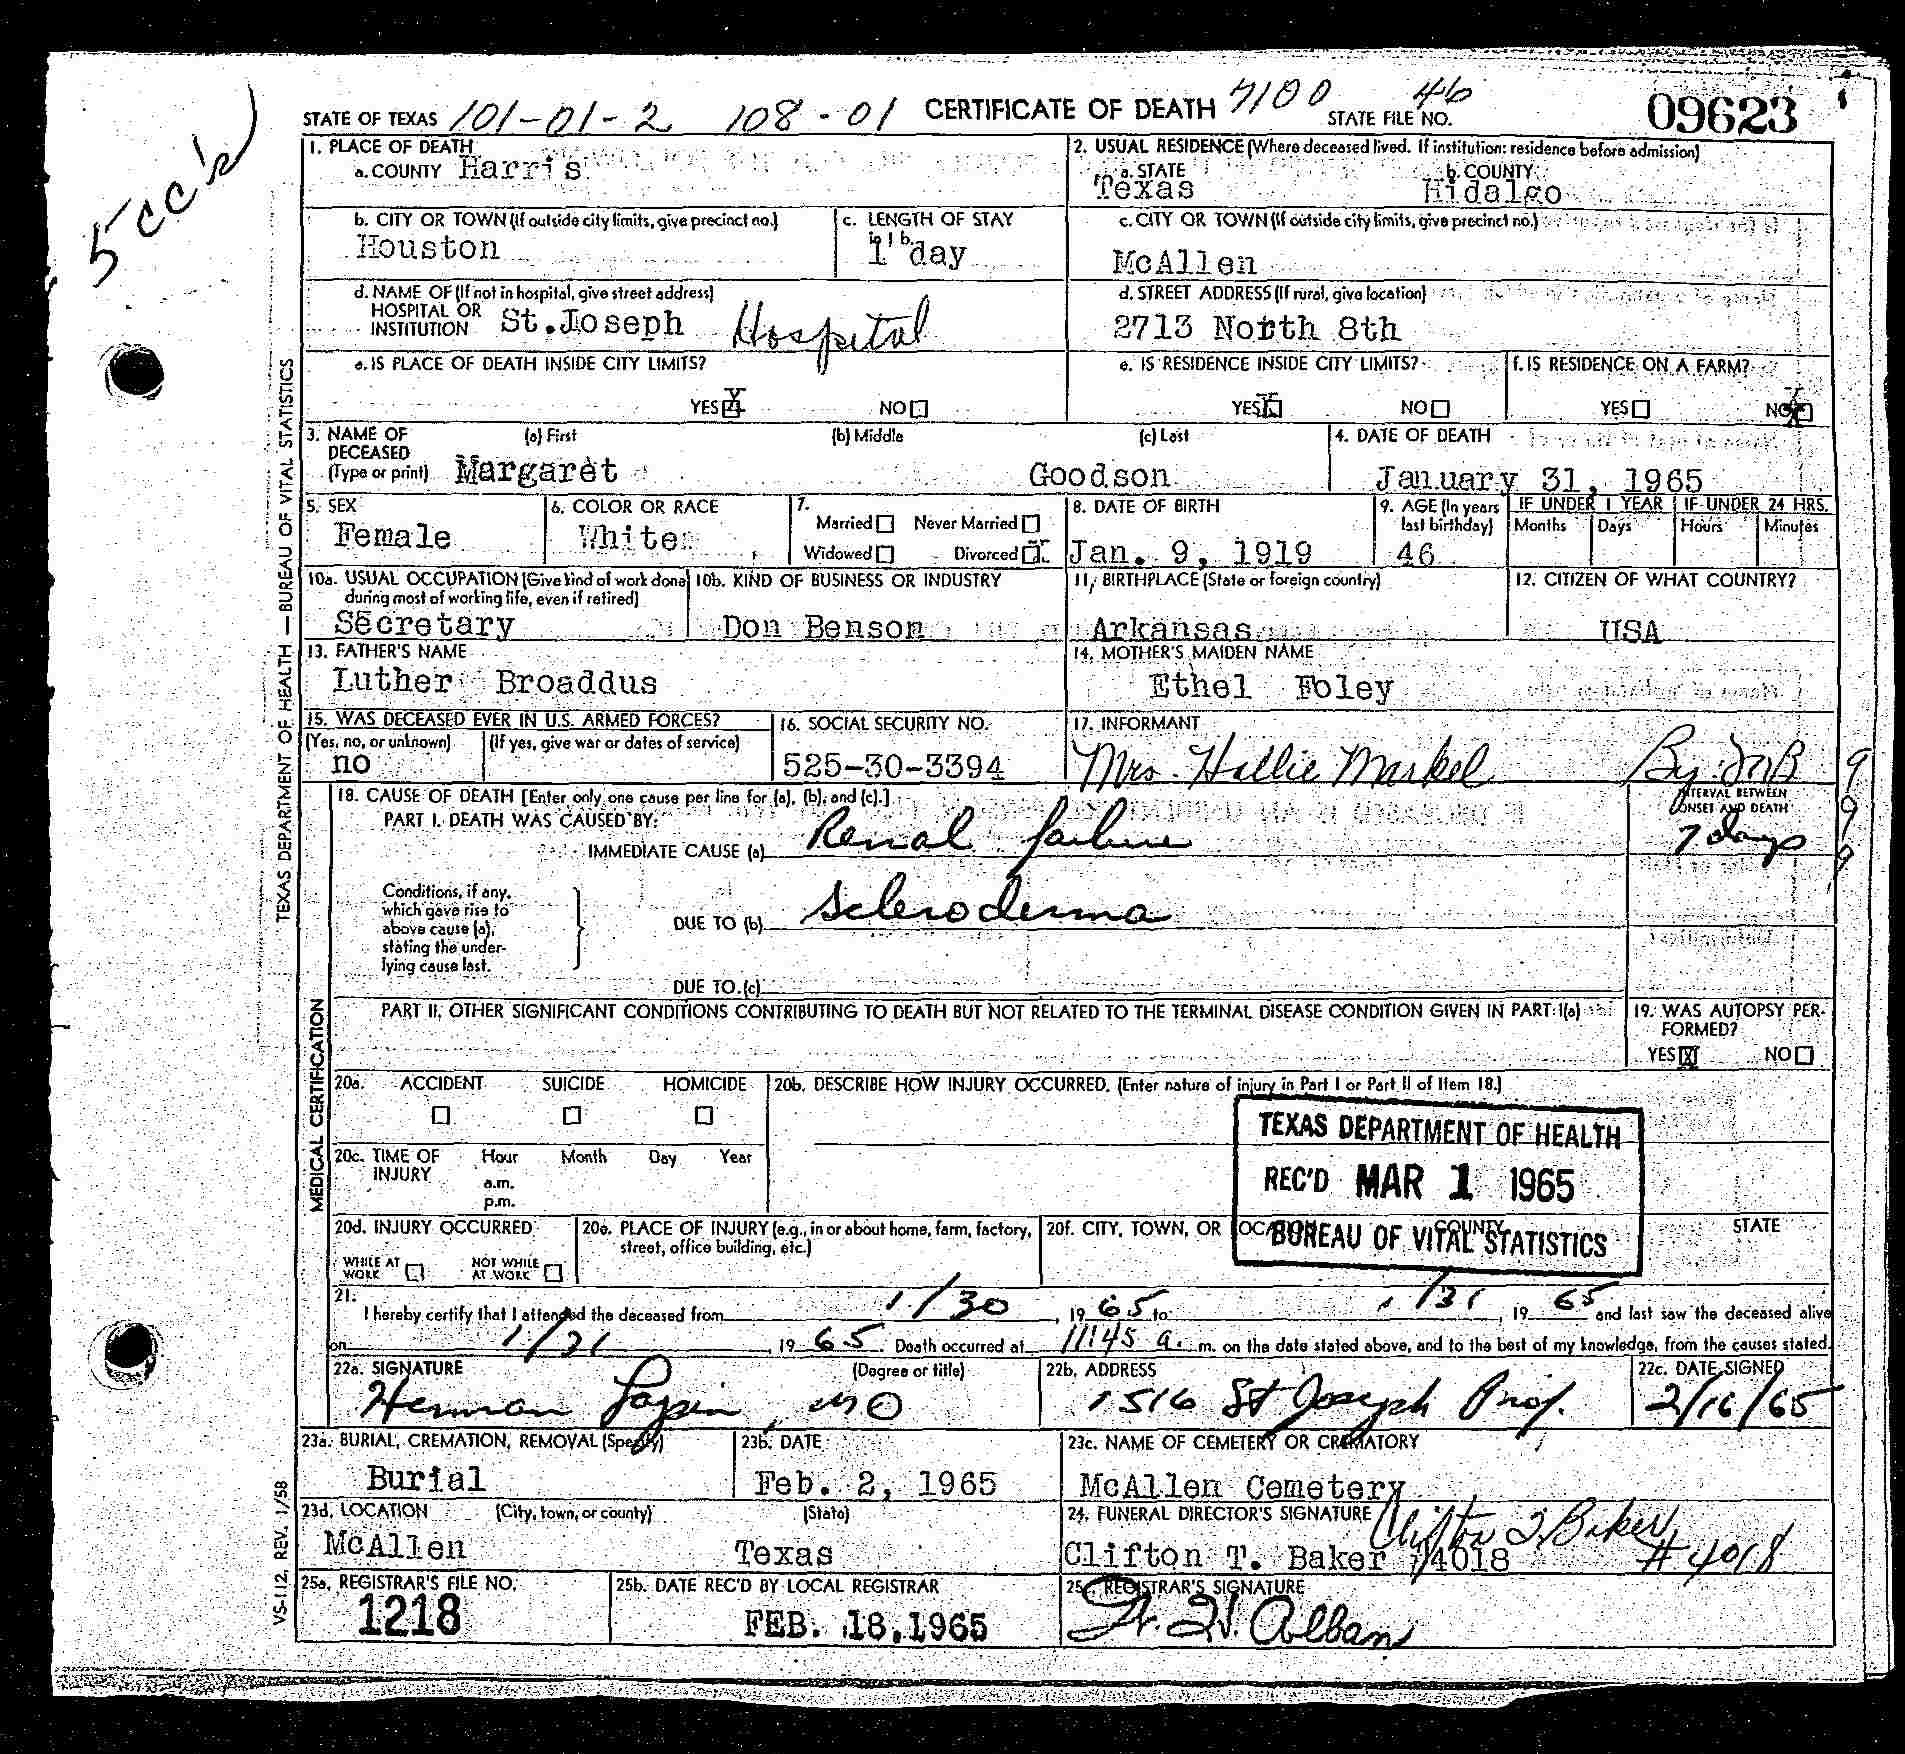 5 cc's
STATE OF TEXAS 101-01-2 108-01 CERTIFICATE OF DEATH 7100 46 STATE FILE NO. 09623
1. PLACE OF DEATH
a. COUNTY Harris
2. USUAL RESIDENCE (Where deceased lived. If institution: residence before admission)
a. STATE Texas b. COUNTY Hidalgo
b. CITY OR TOWN (If outside city limits, give precinct no.) Houston
c. LENGTH OF STAY in 1b 1 day
c. CITY OR TOWN (If outside city limits, give precinct no.)
McAllen
d. NAME OF (If not in hospital, give street address)
HOSPITAL OR INSTITUTION St.Joseph Hospital
d. STREET ADDRESS (If rural, give location)
2713 North 8th
e. IS PLACE OF DEATH INSIDE CITY LIMITS?
YES X NO
e. IS RESIDENCE INSIDE CITY LIMITS?
YES X NO
f. IS RESIDENCE ON A FARM?
YES NO X
3. NAME OF DECEASED (Type or print)
(a) First (b) Middle (c) Last
Margaret Goodson
4. DATE OF DEATH
January 31, 1965
5. SEX
Female
6. COLOR OR RACE
White
7.
Married Never Married
Widowed Divorced X
8. DATE OF BIRTH
Jan. 9, 1919
9. AGE (In years last birthday)
46
IF UNDER 1 YEAR IF UNDER 24 HRS.
Months Days Hours Minutes
10a. USUAL OCCUPATION (Give kind of work done during most of working life, even if retired)
Secretary
10b. KIND OF BUSINESS OR INDUSTRY
Don Benson
11. BIRTHPLACE (State or foreign country)
Arkansas
12. CITIZEN OF WHAT COUNTRY?
USA
13. FATHER'S NAME
Luther Broaddus
14. MOTHER'S MAIDEN NAME
Ethel Foley
15. WAS DECEASED EVER IN U.S. ARMED FORCES?
(Yes, no, or unknown) (If yes, give war or dates of service)
no
16. SOCIAL SECURITY NO.
525-30-3394
17. INFORMANT
Mrs. Hallie Markel
999
18. CAUSE OF DEATH [Enter only one cause per line for (a), (b), and (c).]
PART I. DEATH WAS CAUSED BY:
IMMEDIATE CAUSE (a) Renal failure
INTERVAL BETWEEN ONSET AND DEATH
7 days
Conditions, if any, which gave rise to above cause (a), stating the underlying cause last.
DUE TO (b) Scleroderma
DUE TO (c)
PART II. OTHER SIGNIFICANT CONDITIONS CONTRIBUTING TO DEATH BUT NOT RELATED TO THE TERMINAL DISEASE CONDITION GIVEN IN PART 1(a)
19. WAS AUTOPSY PERFORMED?
YES X NO
20a. ACCIDENT SUICIDE HOMICIDE
20b. DESCRIBE HOW INJURY OCCURRED. (Enter nature of injury in Part I or Part II of Item 18.)
20c. TIME OF INJURY Hour Month Day Year
a.m.
p.m.
TEXAS DEPARTMENT OF HEALTH
REC'D MAR 1 1965
BUREAU OF VITAL STATISTICS
20d. INJURY OCCURRED
WHILE AT WORK NOT WHILE AT WORK
20e. PLACE OF INJURY (e.g., in or about home, farm, factory, street, office building, etc.)
20f. CITY, TOWN, OR LOCATION COUNTY STATE
21.
I hereby certify that I attended the deceased from 1/30, 1965 to 1/31, 1965 and last saw the deceased alive
on 1/31, 1965. Death occurred at 11:45 a. m. on the date stated above, and to the best of my knowledge, from the causes stated.
22a. SIGNATURE (Degree or title)
Herman Lapin, MD
22b. ADDRESS
1516 St Joseph Prof.
22c. DATE SIGNED
2/16/65
23a. BURIAL, CREMATION, REMOVAL (Specify)
Burial
23b. DATE
Feb. 2, 1965
23c. NAME OF CEMETERY OR CREMATORY
McAllen Cemetery
23d. LOCATION (City, town, or county) (State)
McAllen Texas
24. FUNERAL DIRECTOR'S SIGNATURE Clifton T. Baker
Clifton T. Baker #4018 #4018
25a. REGISTRAR'S FILE NO.
1218
25b. DATE REC'D BY LOCAL REGISTRAR
FEB. 18, 1965
25c. REGISTRAR'S SIGNATURE
Alban
TEXAS DEPARTMENT OF HEALTH — BUREAU OF VITAL STATISTICS
MEDICAL CERTIFICATION
VS-112, REV. 1/58